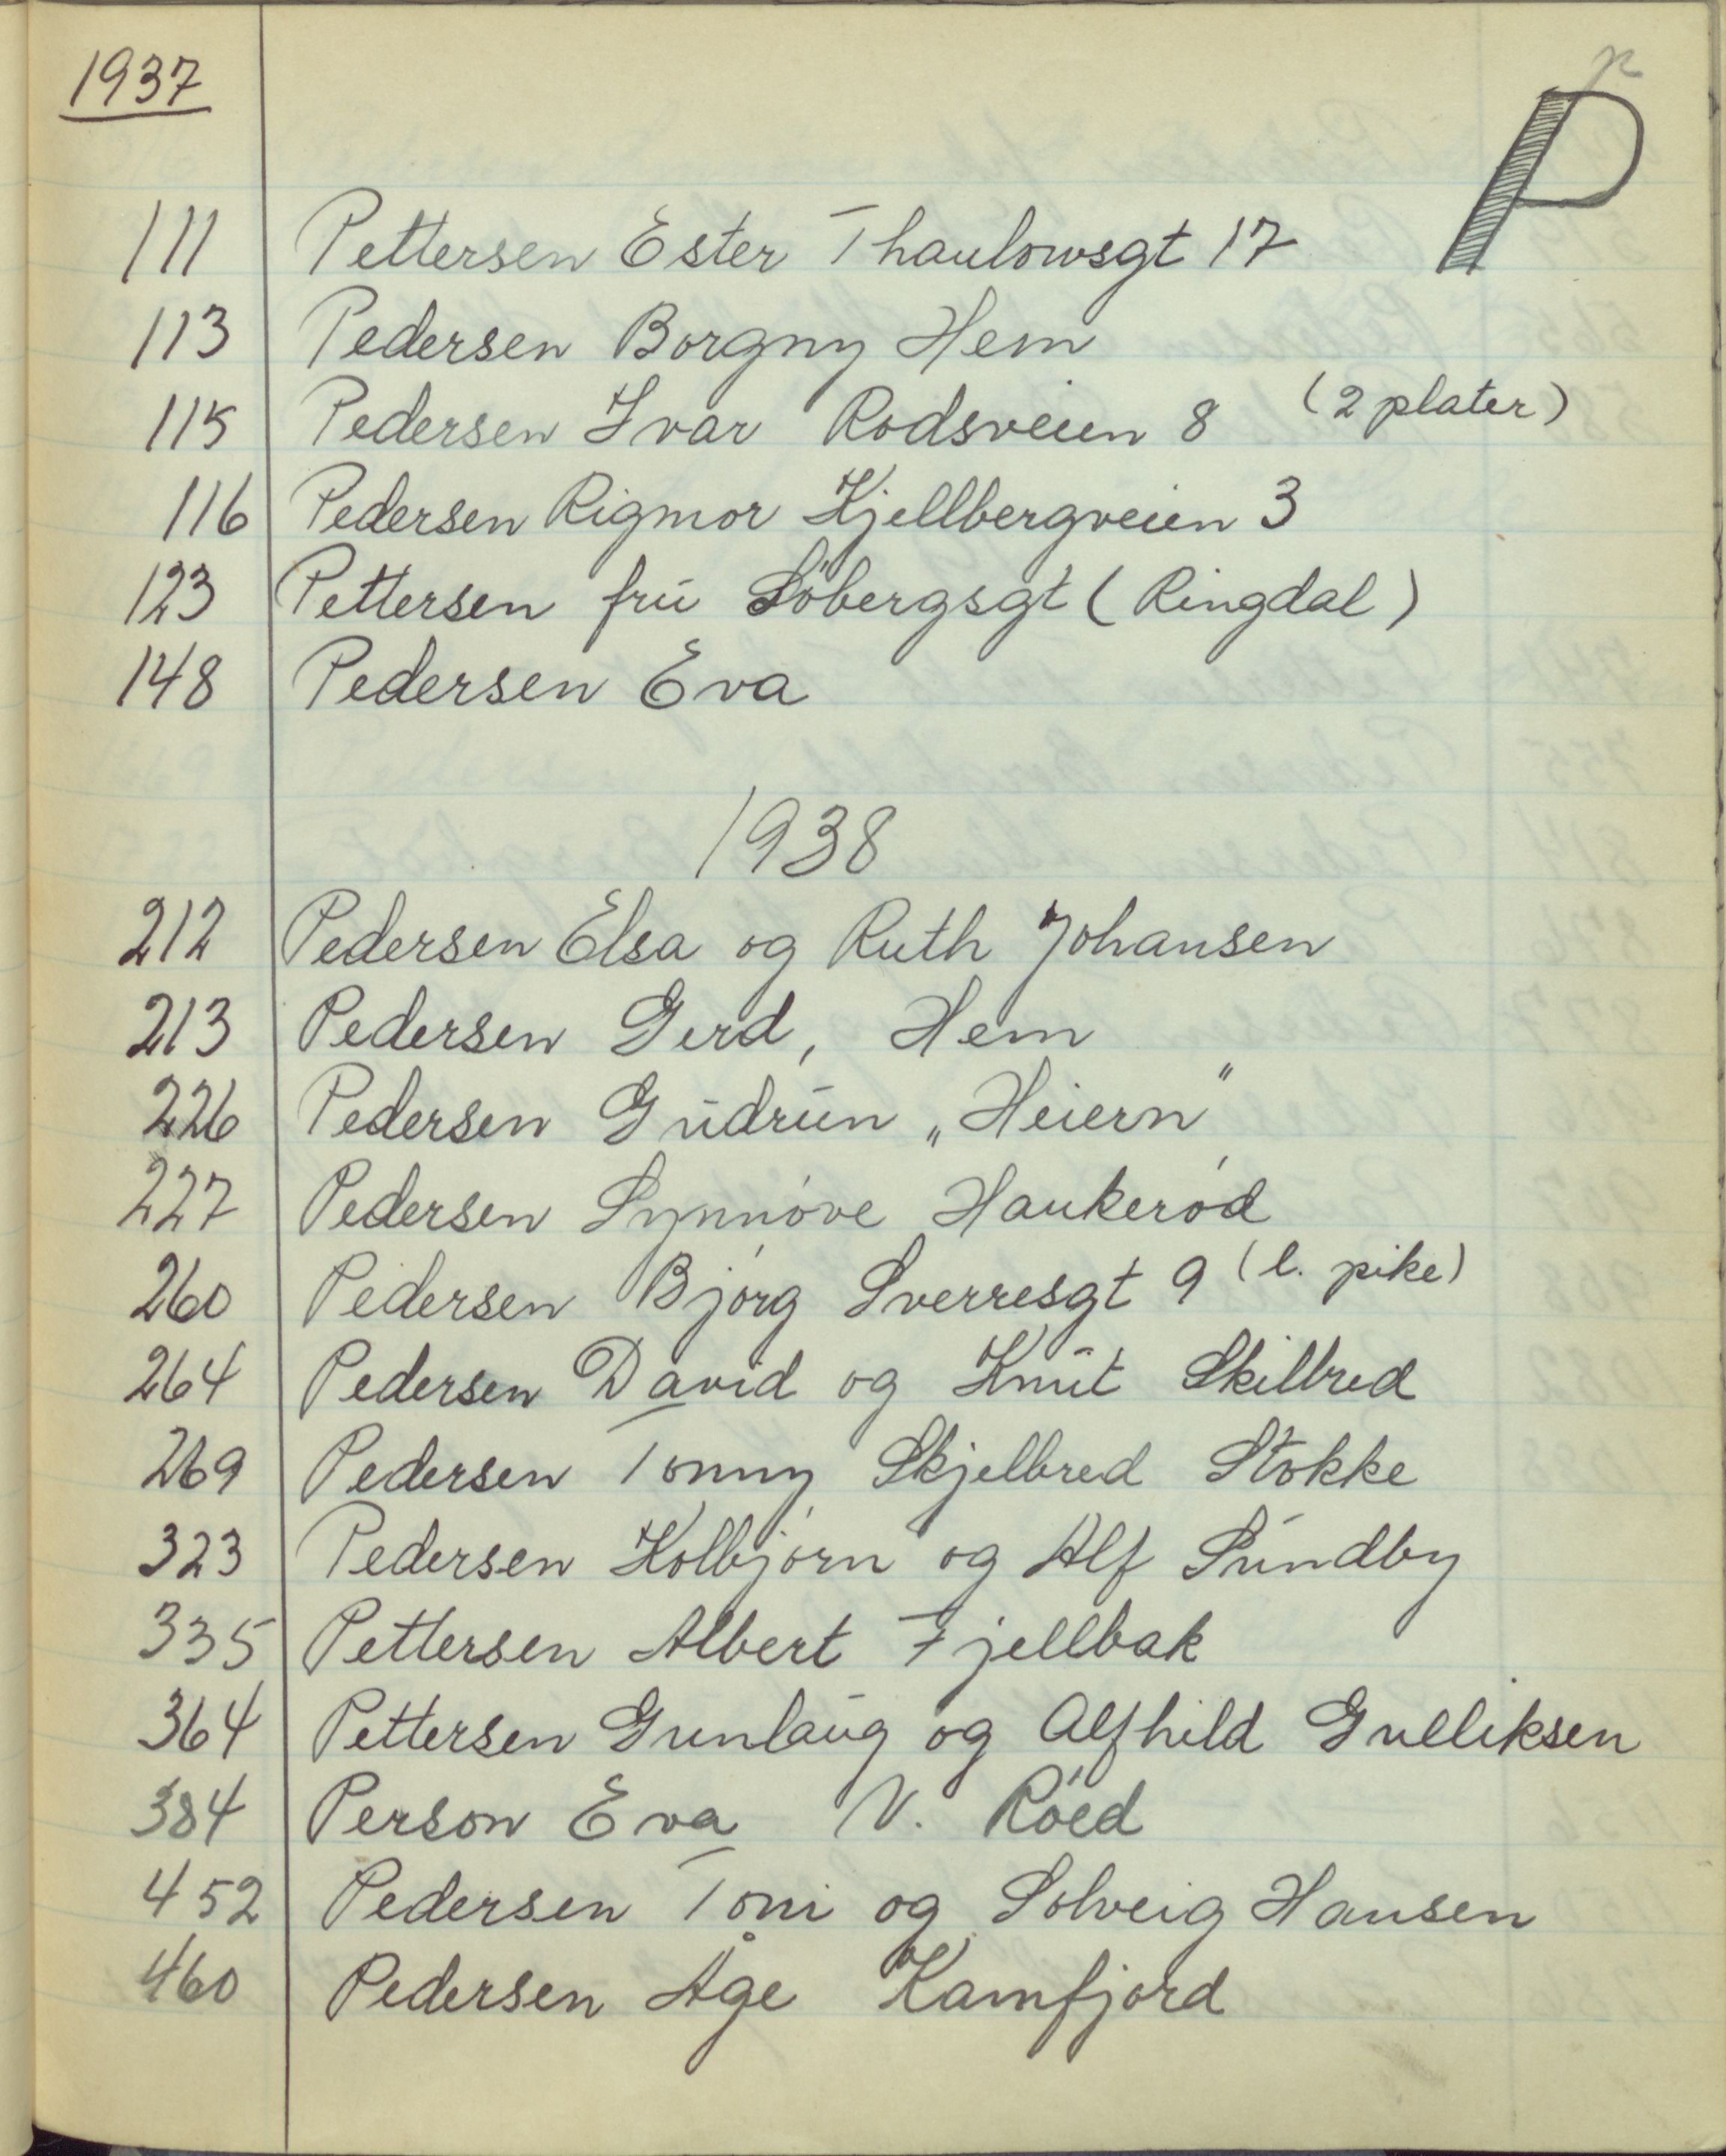 1937
p
P
111 Pettersen Ester Thaulowsgt 17
113 Pedersen Borgny Hem
115 Pedersen Ivar Rodsveien 8 (2 plater)
116 Pedersen Rigmor Kjellbergveien 3
123 Pettersen fru Söbergsgt (Ringdal)
148 Pedersen Eva
1938
212 Pedersen Elsa og Ruth Johansen
213 Pedersen Gerd, Hem
226 Pedersen Gudrun „Heiern"
227 Pedersen Synnóve Haukeród
260 Pedersen Bjórg Sverresgt 9 (l. pike)
264 Pedersen David og Knut Skilbred
269 Pedersen Tonny Skjelbred Stokke
323 Pedersen Kolbjórn og Alf Sundby
335 Pettersen Albert Fjellbak
364 Pettersen Gunlaug og Alfhild Gulliksen
384 Person Eva N. Róed
452 Pedersen Toni og Solveig Hansen
460 Pedersen Åge Kamfjord